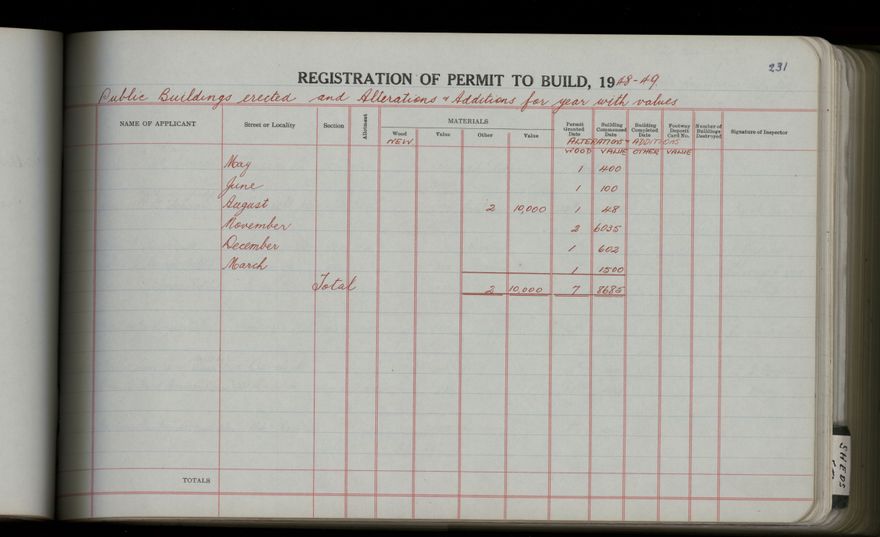 231
REGISTRATION OF PERMIT TO BUILD, 1948-49
Public Buildings erected and Alterations & Additions for year with values
NAME OF APPLICANT Street or Locality Section Allotment MATERIALS Permit Granted Date Building Commenced Date Building Completed Date Footway Deposit Card No. Number of Buildings Destroyed Signature of Inspector
Wood Value Other Value
NEW ALTERATIONS & ADDITIONS
WOOD VALUE OTHER VALUE
May 1 400
June 1 100
August 2 10,000 1 48
November 2 6035
December 1 602
March 1 1500
Total 2 10,000 7 8685
TOTALS
SHEDS